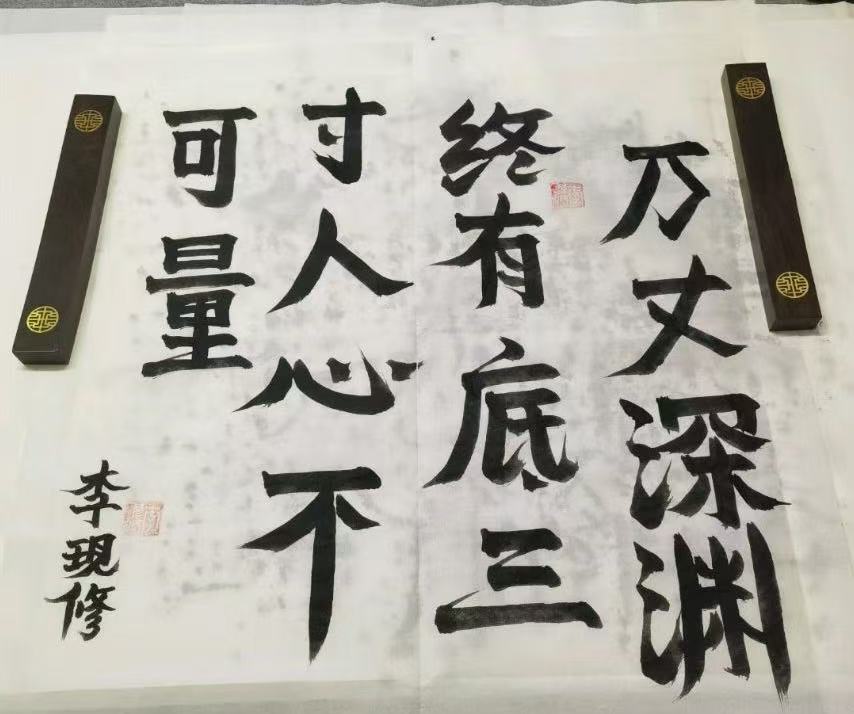 万丈深渊
终有底三
寸人心不
可量
李现修